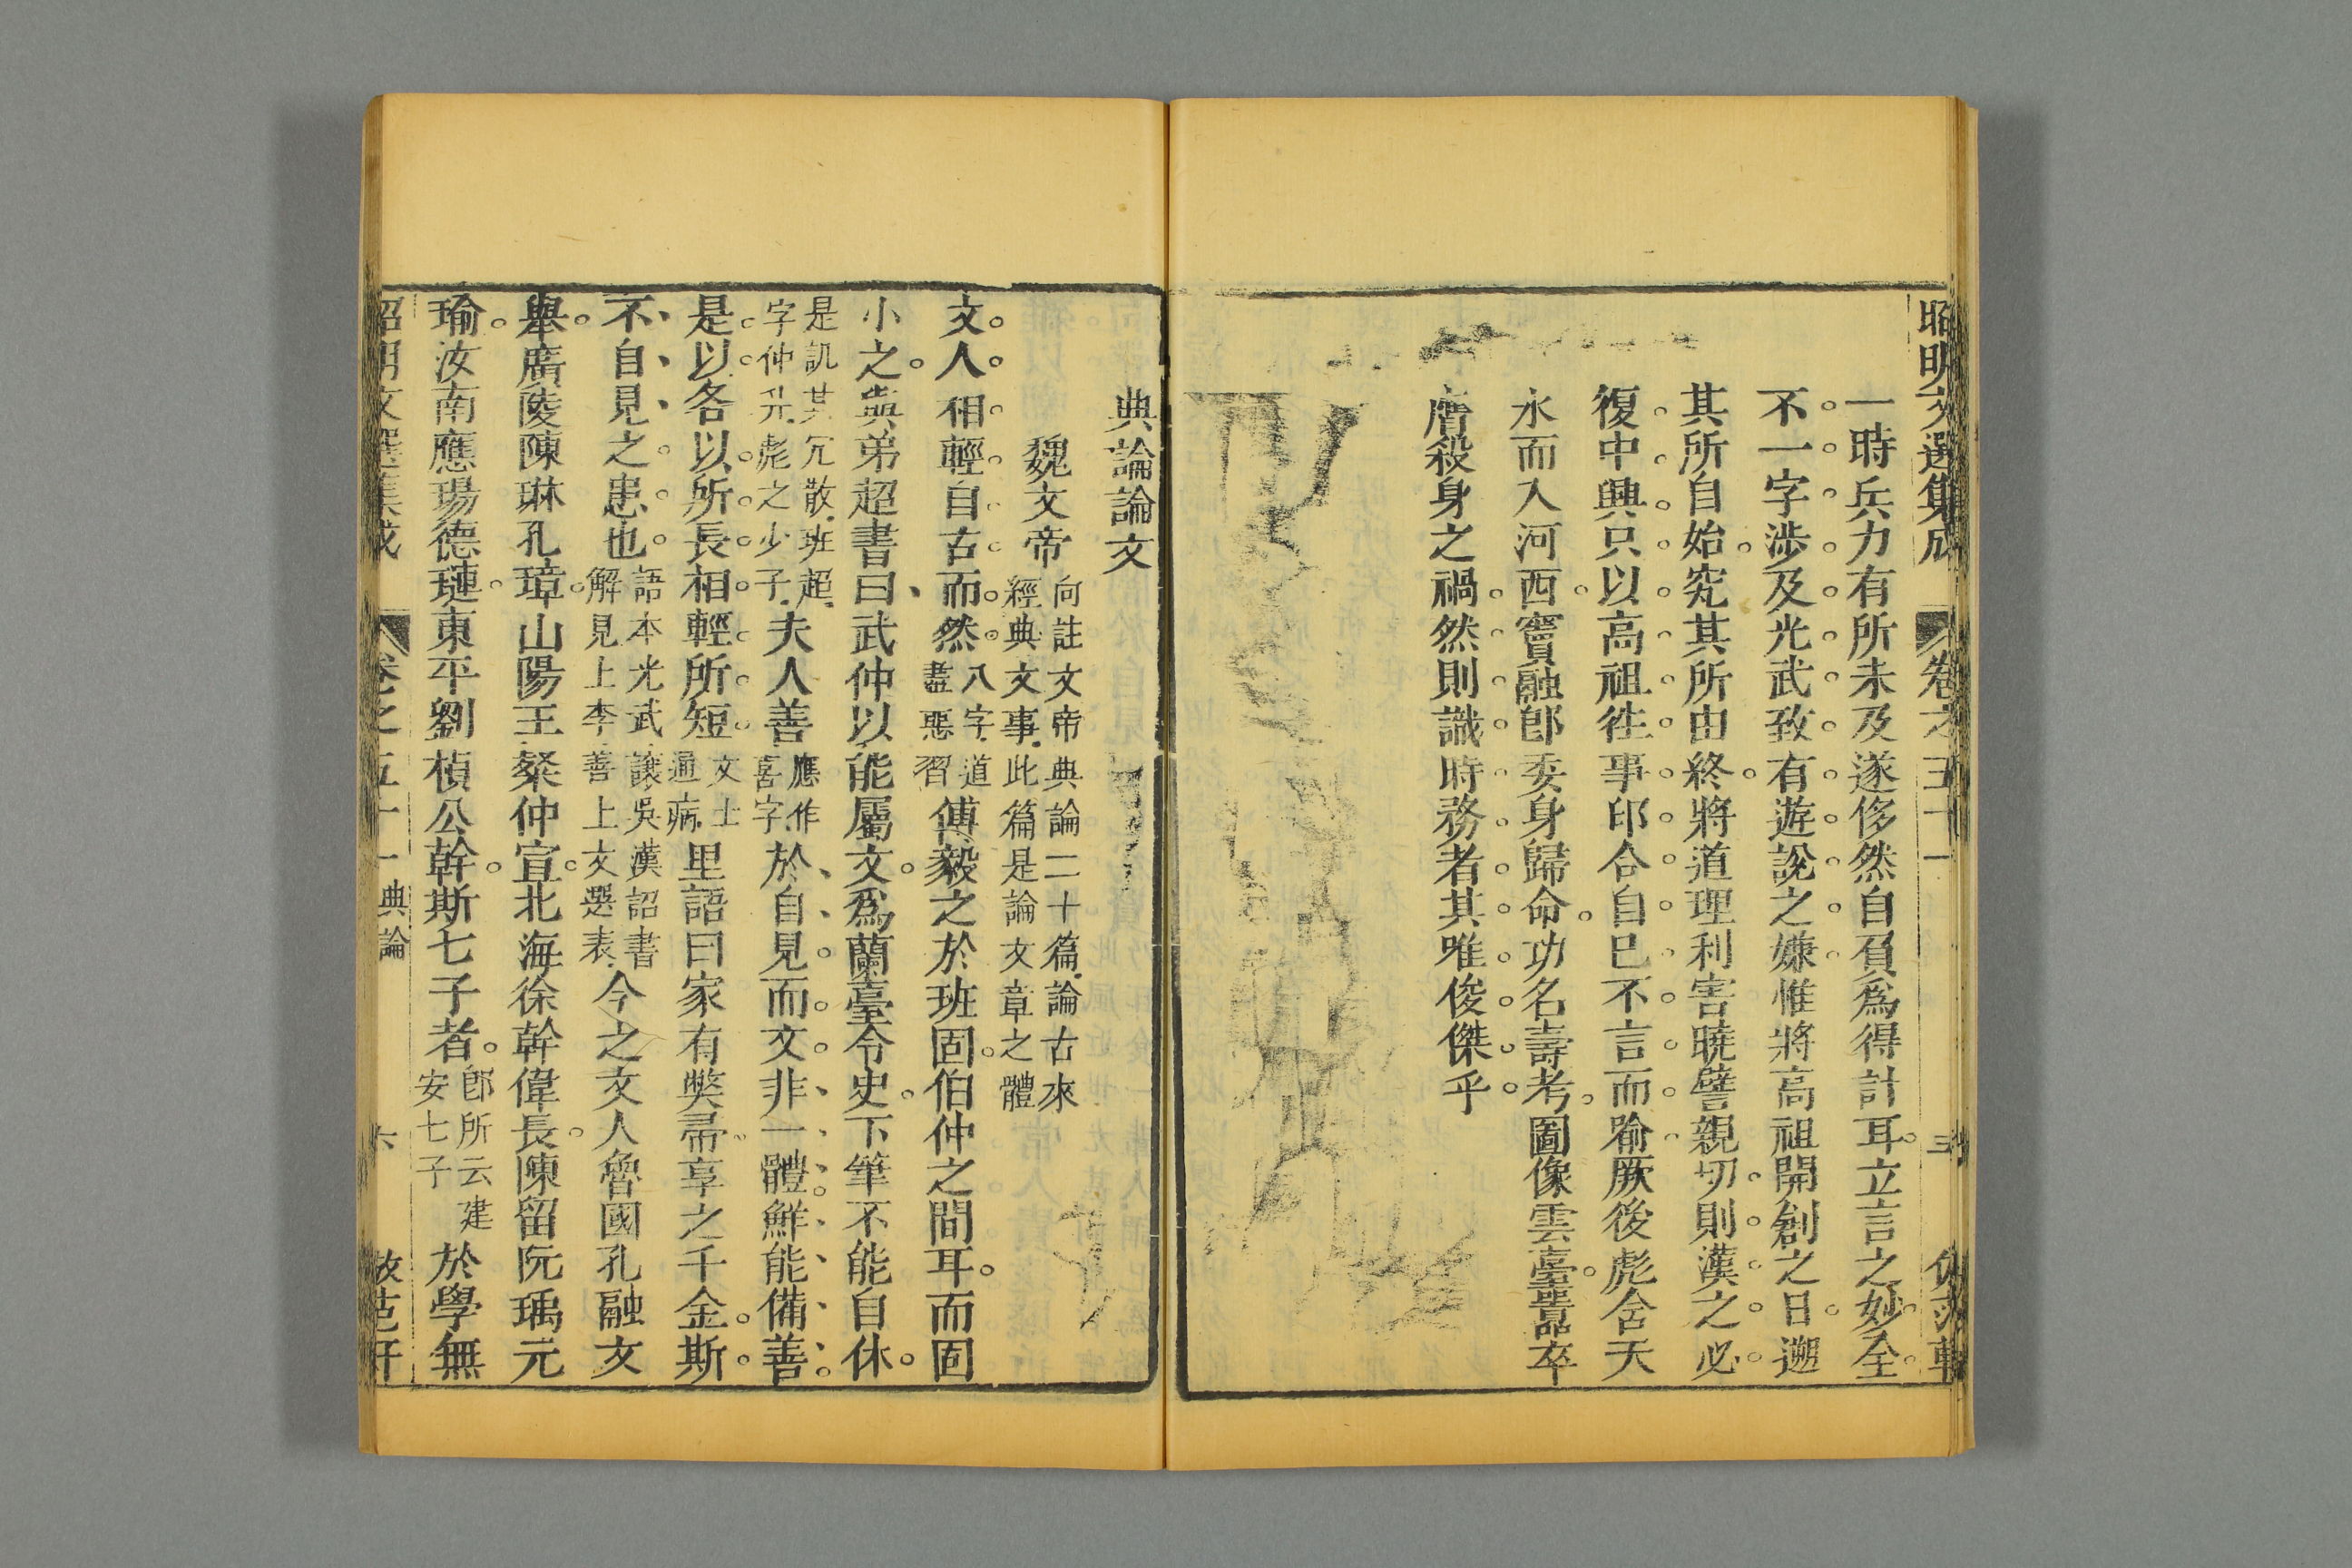 昭明文選集成　卷之五十一
一時兵力有所未及遂侈然自負爲得計耳立言之妙全
不一字涉及光武致有遊說之嫌惟將高祖開創之日遡
其所自始究其所由終將道理利害曉譬親切則漢之必
復中興只以高祖徃事印合自已不言而踰厥後彪舍天
永而入河西竇融卽委身歸命功名壽考圖像雲臺囂卒
膺殺身之禍然則識時務者其唯俊傑乎
典論論文
魏文帝
向註文帝典論二十篇論古來
經典文事此篇是論文章之體
文人相輕自古而然
八字道
盡惡習
傅毅之於班固伯仲之間耳而固
小之與弟超書曰武仲以能屬文爲蘭臺令史下筆不能自休
是譏其冗散班超
字仲升彪之少子
夫人善
應作
喜字
於自見而文非一體鮮能備善
是以各以所長相輕所短
文士
通病
里語曰家有弊帚享之千金斯
不自見之患也
語本光武讓吳漢詔書
解見上李善上文選表
今之文人魯國孔融文
舉廣陵陳琳孔璋山陽王粲仲宣北海徐幹偉長陳留阮瑀元
瑜汝南應瑒德璉東平劉楨公幹斯七子者
卽所云建
安七子
於學無
昭明文選集成　卷之五十一　典論　六　敂范軒